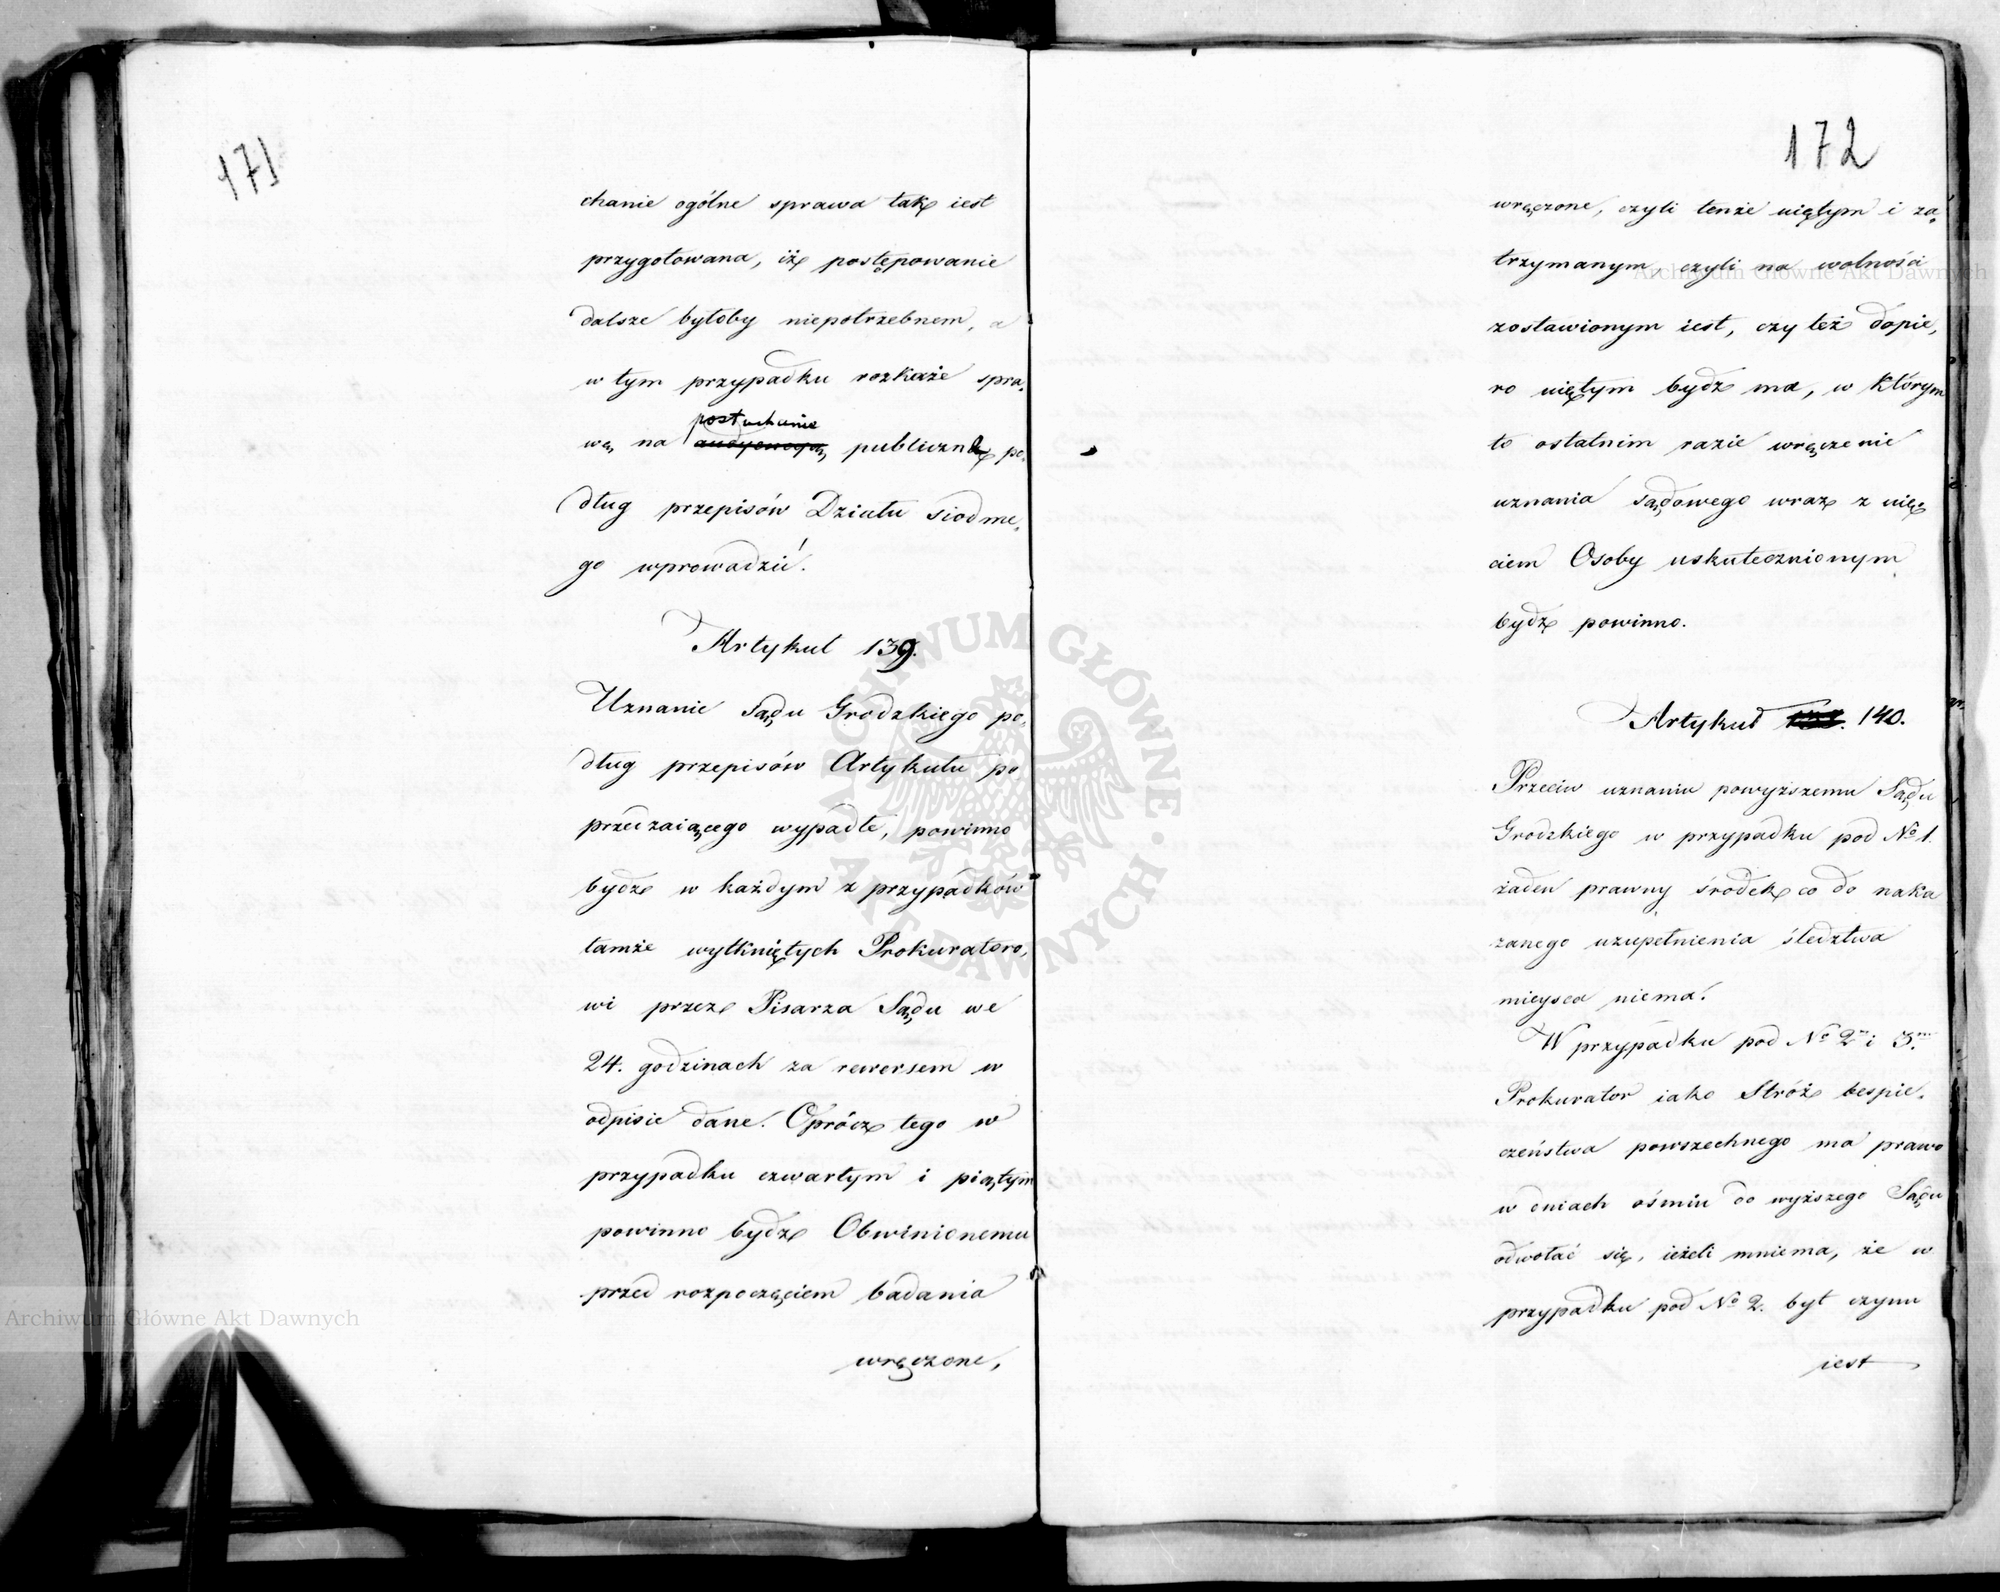 171
chanie ogólne sprawa tak iest
przygotowana, iż postępowanie
dalsze byłoby niepotrzebnem, a
w tym przypadku rozkaże spra,
posłuchanie
wę na audyencyą publiczne po,
dług przepisów Działu siódme,
go wprowadzić.
Artykuł 139.
Uznanie Sądu Grodzkiego po,
dług przepisów Artykułu po
przedzaiącego wypadłe, powinno
bydź w każdym z przypadków
tamże wytkniętych Prokuratoro,
wi przez Pisarza Sądu we
24. godzinach za rewersem w
odpisie dane. Oprócz tego w
przypadku czwartym i piątym
powinno bydź Obwinionemu
przed rozpoczęciem badania
wręczone,
172
wręczone, czyli tenże uiętym i za,
trzymanym, czyli na wolności
zostawionym iest, czy też dopie,
ro uiętym bydź ma, w którym
to ostatnim razie wręczenie
uznania sądowego wraz z uię,
ciem Osoby uskutecznionym
bydź powinno.
Artykuł 140.
Przeciw uznaniu powyższemu Sądu
Grodzkiego w przypadku pod No 1.
żaden prawny środek co do naka
zanego uzupełnienia śledztwa
mieysca niema.
W przypadku pod No 2m i 3m
Prokurator iako Stróż bespie,
czeństwa powszechnego ma prawo
w dniach ośmiu do wyższego Sądu
odwołać się, ieżeli mniema, że w
przypadku pod No 2. był czynu
iest
Archiwum Główne Akt Dawnych
Archiwum Główne Akt Dawnych
ARCHIWUM GŁÓWNE AKT DAWNYCH